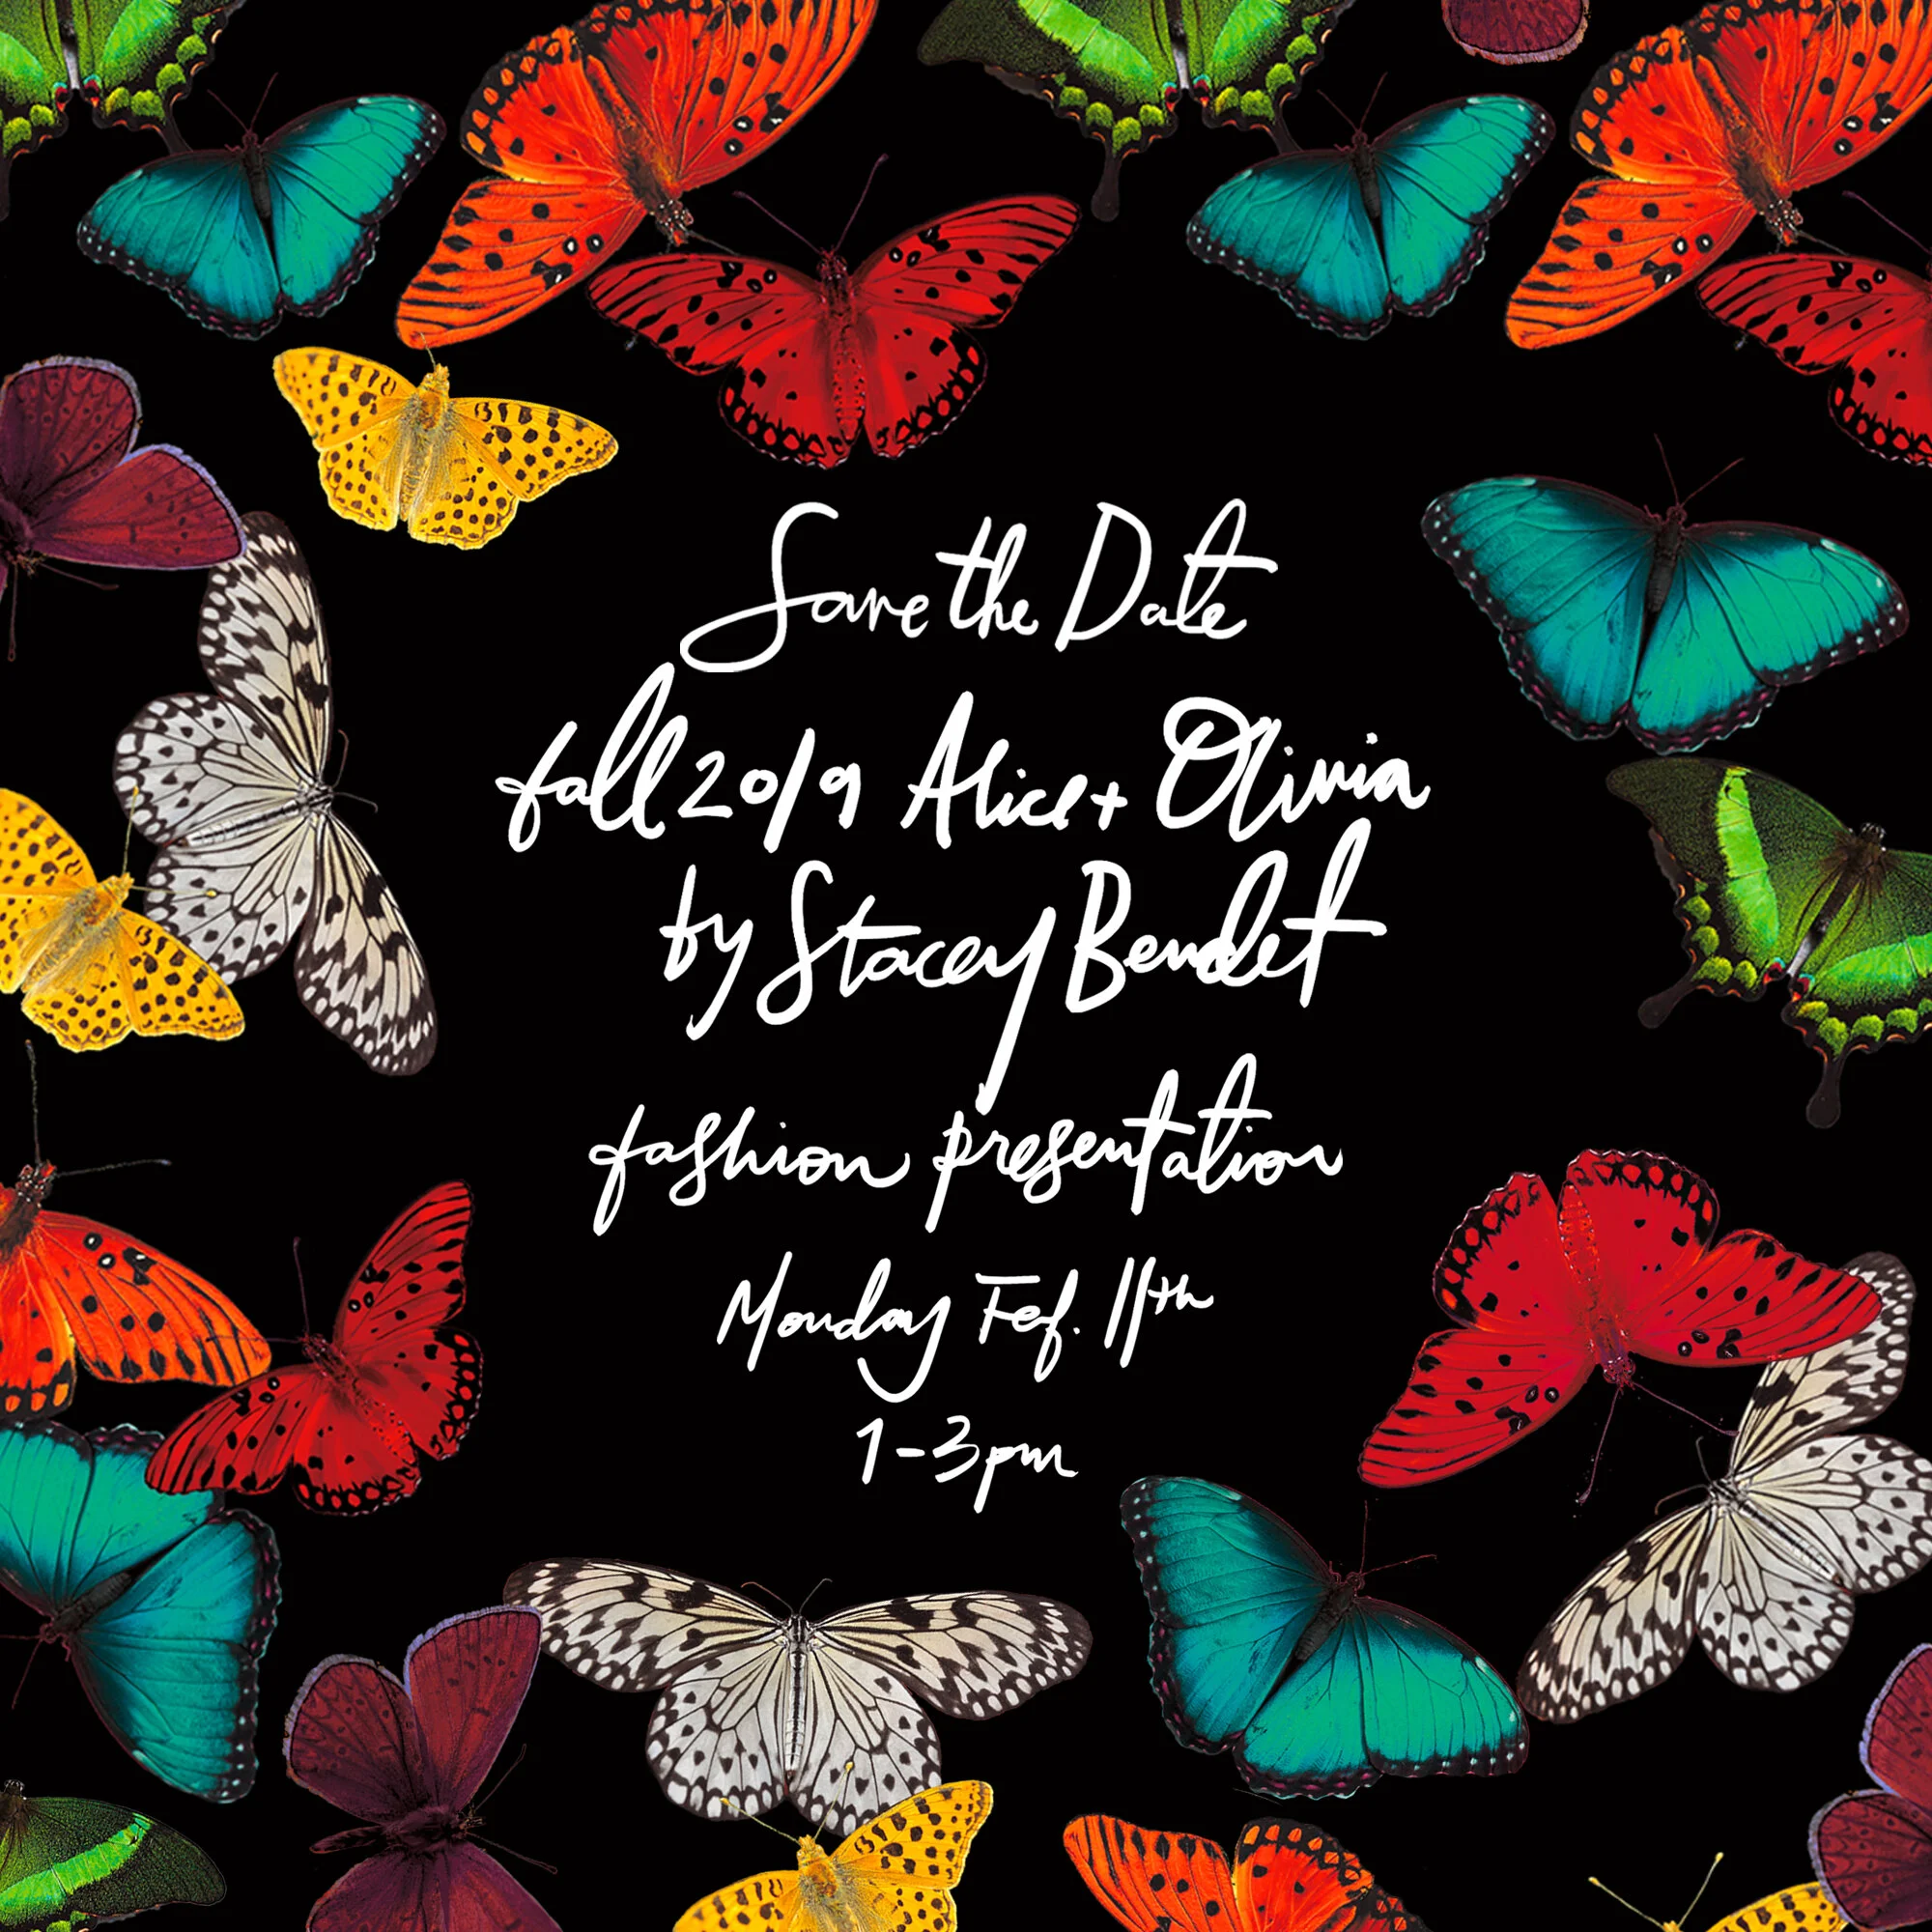 Save the Date
fall 2019 Alice + Olivia
by Stacey Bendet
fashion presentation
Monday Feb. 11th
1-3pm